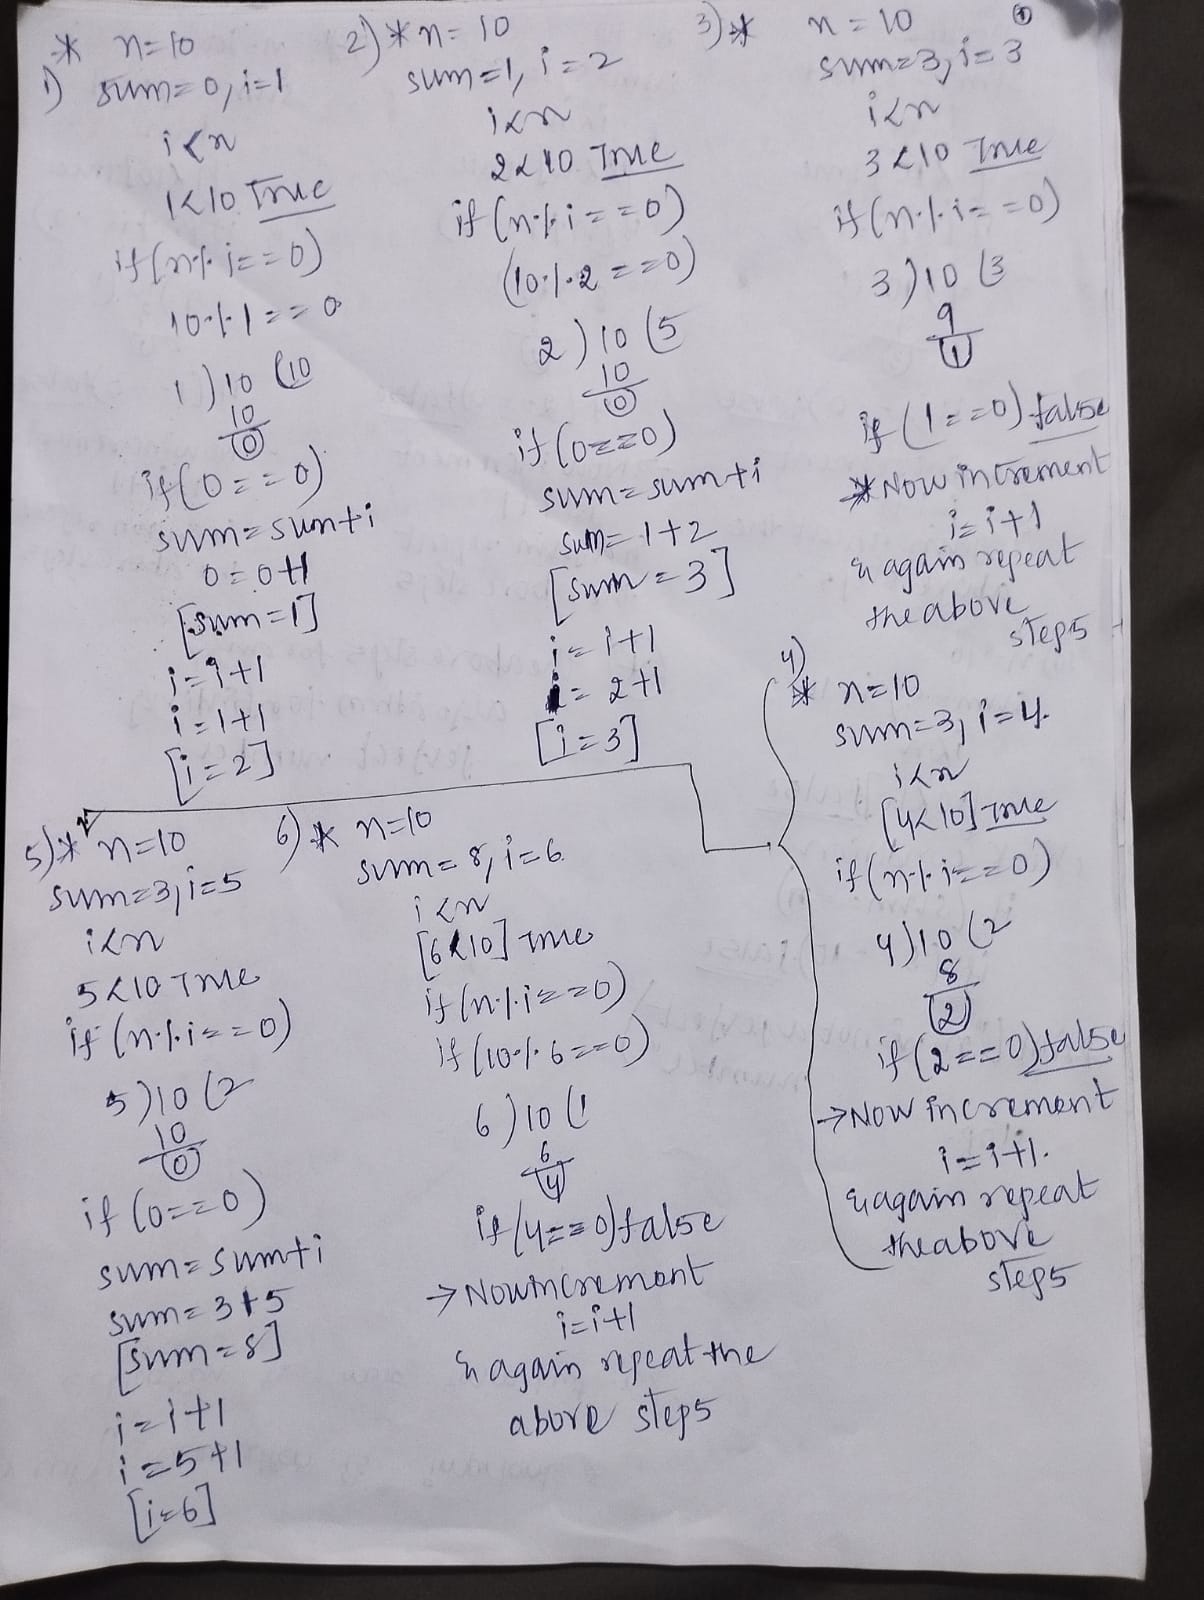 1) * n=10
sum=0, i=1
i<n
1<10 True
if(n%i==0)
10%1==0
1)10(10
10
0
if(0==0)
sum=sum+i
0=0+1
[sum=1]
i=i+1
i=1+1
[i=2]
2) * n=10
sum=1, i=2
i<n
2<10 True
if(n%i==0)
(10%2==0)
2)10(5
10
0
if(0==0)
sum=sum+i
sum=1+2
[sum=3]
i=i+1
i=2+1
[i=3]
①
3) * n=10
sum=3, i=3
i<n
3<10 True
if(n%i==0)
3)10(3
9
1
if(1==0) false
* Now increment
i=i+1
& again repeat
the above
steps
4) * n=10
sum=3, i=4.
i<n
[4<10] True
if(n%i==0)
4)10(2
8
2
if(2==0) false
→ Now increment
i=i+1.
& again repeat
the above
steps
5) * n=10
sum=3, i=5
i<n
5<10 True
if(n%i==0)
5)10(2
10
0
if(0==0)
sum=sum+i
sum=3+5
[sum=8]
i=i+1
i=5+1
[i=6]
6) * n=10
sum=8, i=6.
i<n
[6<10] True
if(n%i==0)
if(10%6==0)
6)10(1
6
4
if(4==0) false
→ Now increment
i=i+1
& again repeat the
above steps